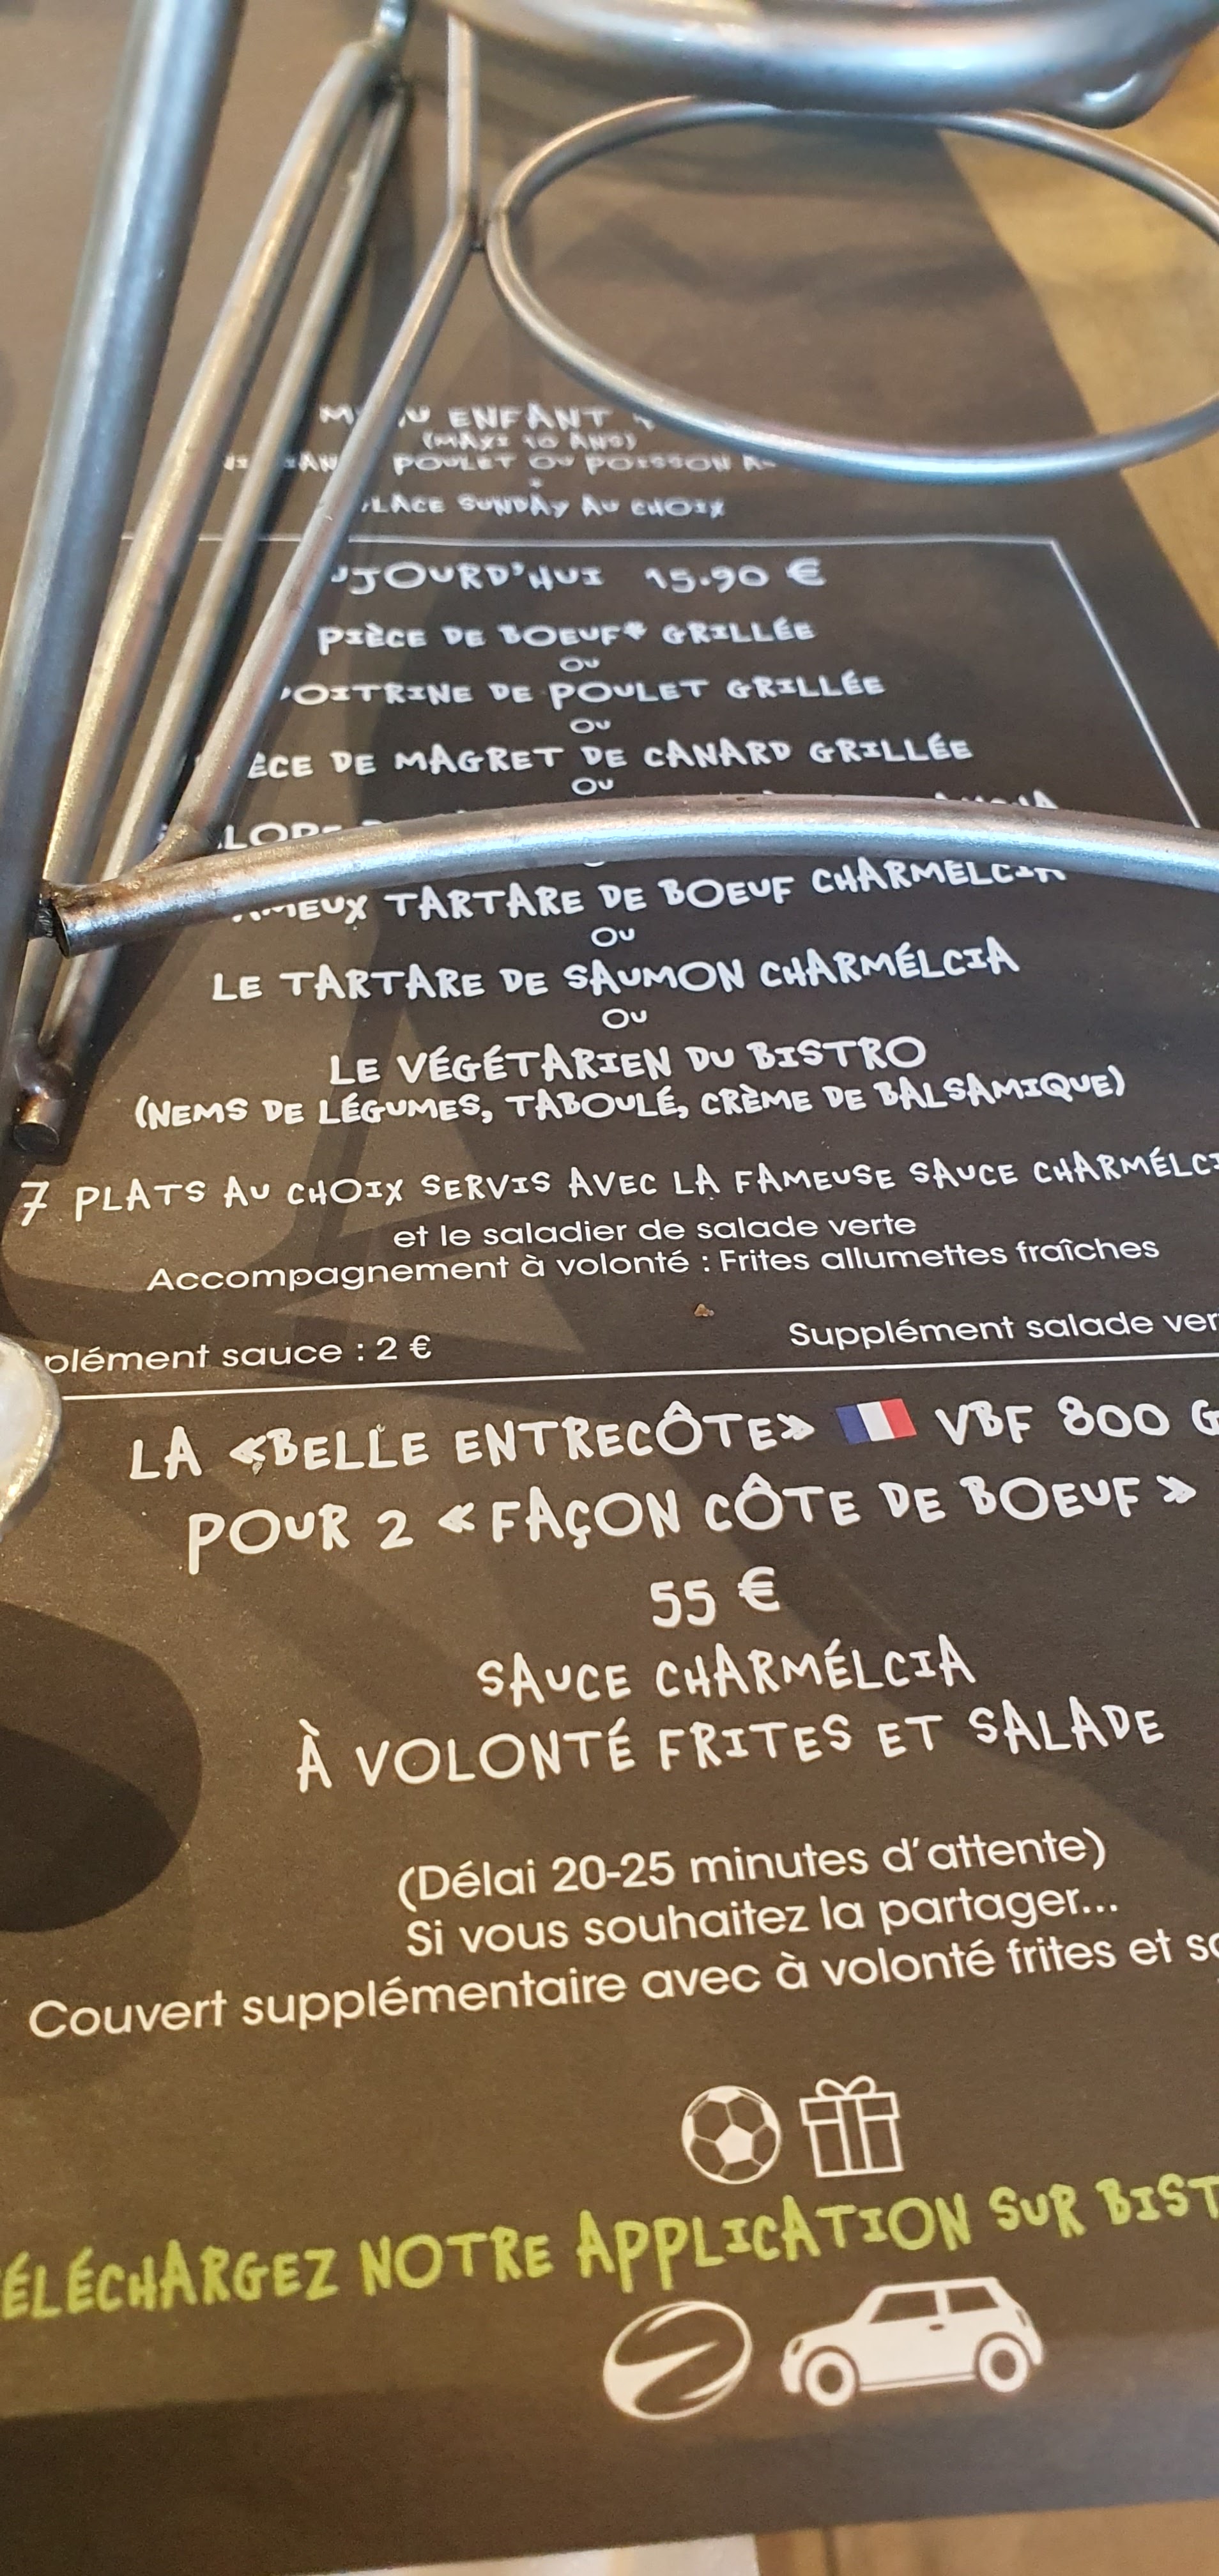 ENFANT
(MAXI 10 ANS)
POULET OU POISSON
SUNDAY AU CHOIX
UJOURD'HUI 15.90 €
PIÈCE DE BOEUF* GRILLÉE
OU
POITRINE DE POULET GRILLÉE
OU
ÈCE DE MAGRET DE CANARD GRILLÉE
OU
MEUX TARTARE DE BOEUF CHARMÉLCIA
OU
LE TARTARE DE SAUMON CHARMÉLCIA
OU
LE VÉGÉTARIEN DU BISTRO
(NEMS DE LÉGUMES, TABOULÉ, CRÈME DE BALSAMIQUE)
7 PLATS AU CHOIX SERVIS AVEC LA FAMEUSE SAUCE CHARMÉLCI
et le saladier de salade verte
Accompagnement à volonté : Frites allumettes fraîches
plément sauce : 2 € Supplément salade ver
LA «BELLE ENTRECÔTE» VBF 800 G
POUR 2 « FAÇON CÔTE DE BOEUF »
55 €
SAUCE CHARMÉLCIA
À VOLONTÉ FRITES ET SALADE
(Délai 20-25 minutes d'attente)
Si vous souhaitez la partager...
Couvert supplémentaire avec à volonté frites et sa
ÉLÉCHARGEZ NOTRE APPLICATION SUR BIST